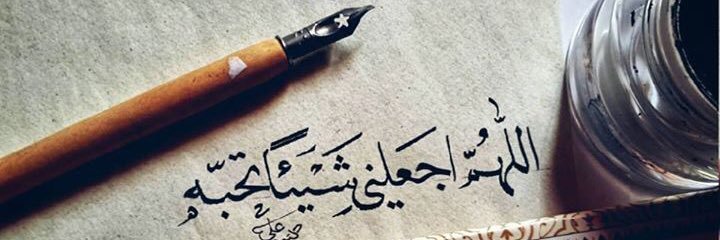 اللّهُمّ اجعَلني شَيئاً تحبّه